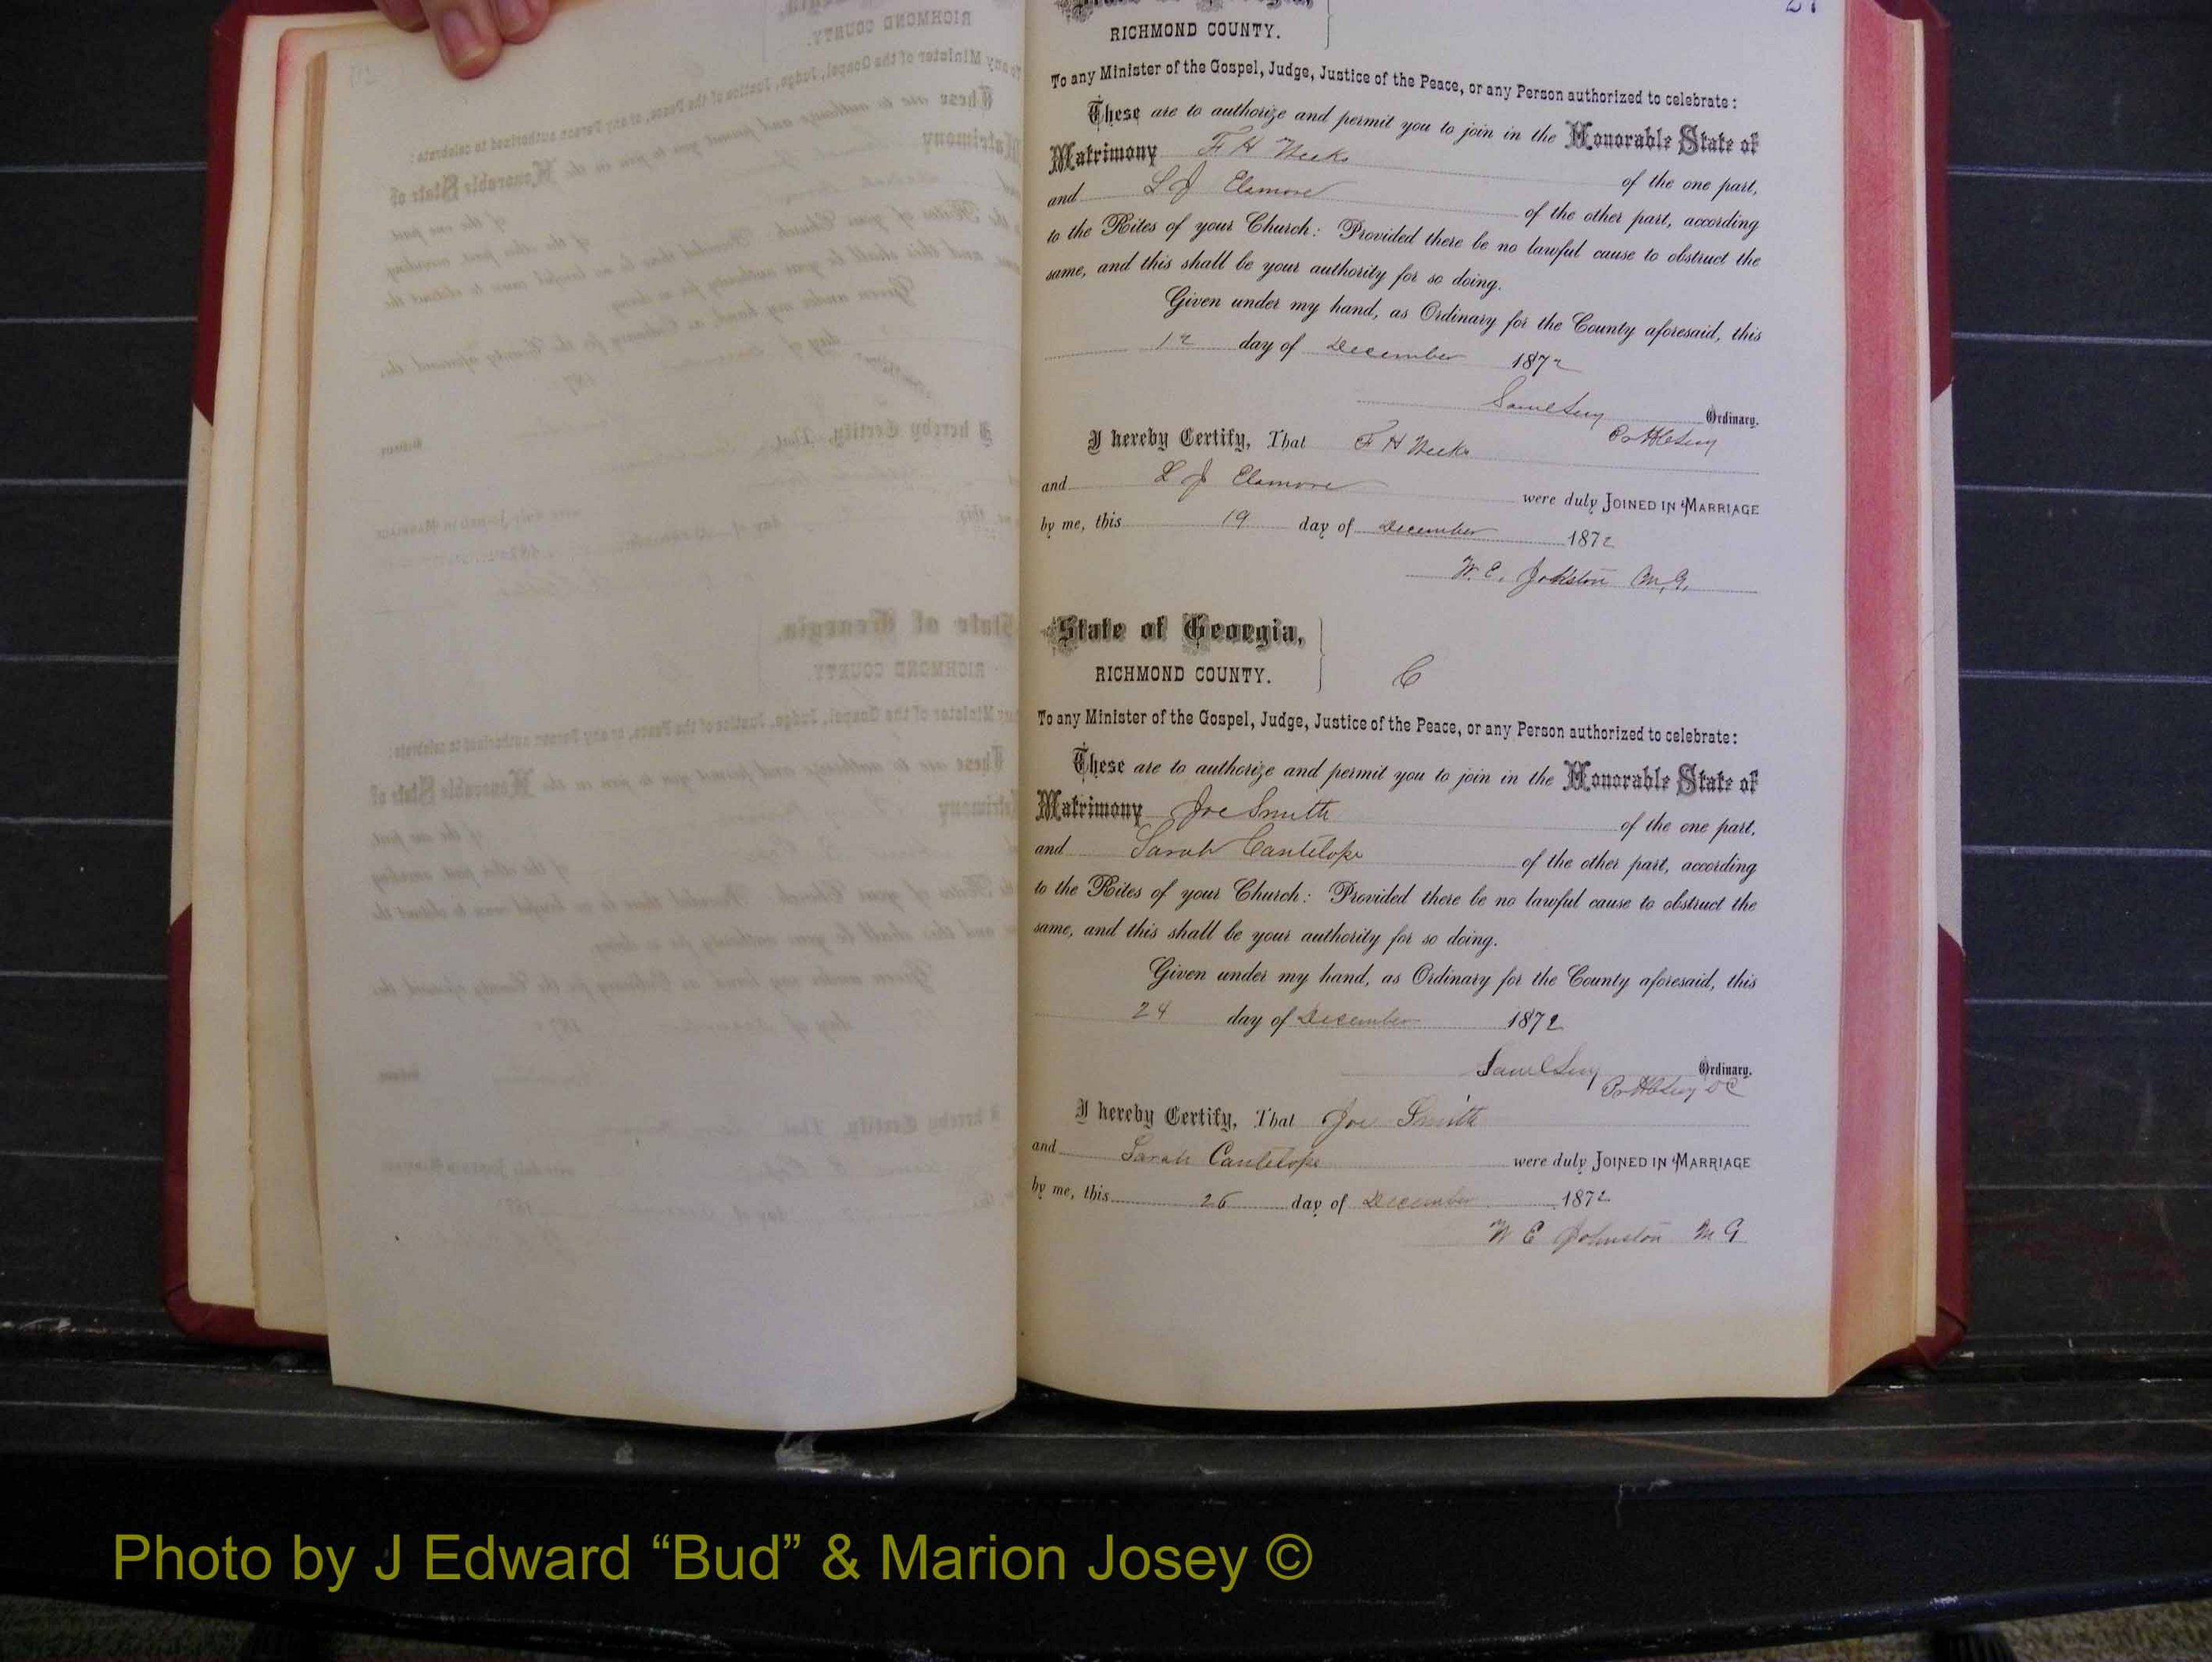 RICHMOND COUNTY.
To any Minister of the Gospel, Judge, Justice of the Peace, or any Person authorized to celebrate:
These are to authorize and permit you to join in the Honorable State of
Matrimony F H Weeks of the one part,
and L J Elsmore of the other part, according
to the Rites of your Church: Provided there be no lawful cause to obstruct the
same, and this shall be your authority for so doing.
Given under my hand, as Ordinary for the County aforesaid, this
12 day of December 1872
Saml Levy Ordinary.
I hereby Certify, That F H Weeks
and L J Elsmore were duly JOINED IN MARRIAGE
by me, this 19 day of December 1872
W. E. Johnston M, G,
State of Georgia,
RICHMOND COUNTY. C
To any Minister of the Gospel, Judge, Justice of the Peace, or any Person authorized to celebrate:
These are to authorize and permit you to join in the Honorable State of
Matrimony Joe Smith of the one part,
and Sarah Cantelope of the other part, according
to the Rites of your Church: Provided there be no lawful cause to obstruct the
same, and this shall be your authority for so doing.
Given under my hand, as Ordinary for the County aforesaid, this
24 day of December 1872
Saml Levy Ordinary.
I hereby Certify, That Joe Smith
and Sarah Cantelope were duly JOINED IN MARRIAGE
by me, this 26 day of December 1872
W E Johnston M G
Photo by J Edward “Bud” & Marion Josey ©